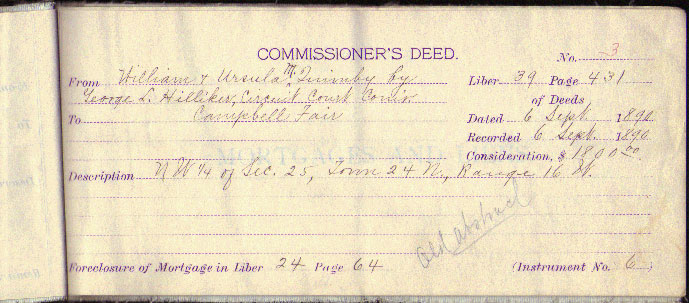 COMMISSIONER'S DEED.
No. 3
From William & Ursula M. Quimby by
Liber 39 Page 431
George L. Hilliker, Circuit Court Com'r.
of Deeds
To Campbell Fair
Dated 6 Sept. 1890
Recorded 6 Sept. 1890
Consideration, $ 1800.00
MORTGAGES AND
Description N W 1/4 of Sec. 25, Town 24 N, Range 16 W.
Old abstract
Foreclosure of Mortgage in Liber 24 Page 64
(Instrument No. 6)